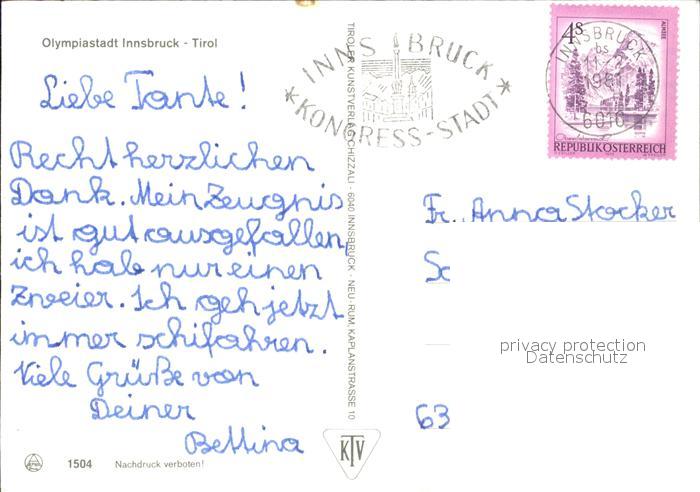 Olympiastadt Innsbruck - Tirol
Liebe Tante!
Recht herzlichen
Dank. Mein Zeugnis
ist gut ausgefallen,
ich hab nur einen
Zweier. Ich geh jetzt
immer schifahren.
Viele Grüße von
Deiner
Bettina
1504 Nachdruck verboten!
TIROLER KUNSTVERLAG CHIZZALI - 6040 INNSBRUCK - NEU-RUM, KAPLANSTRASSE 10
KTV
INNSBRUCK
KONGRESS-STADT
INNSBRUCK
bs
6010
4S
ALMSEE
REPUBLIK ÖSTERREICH
Fr. Anna Stocker
Sc
63
privacy protection
Datenschutz